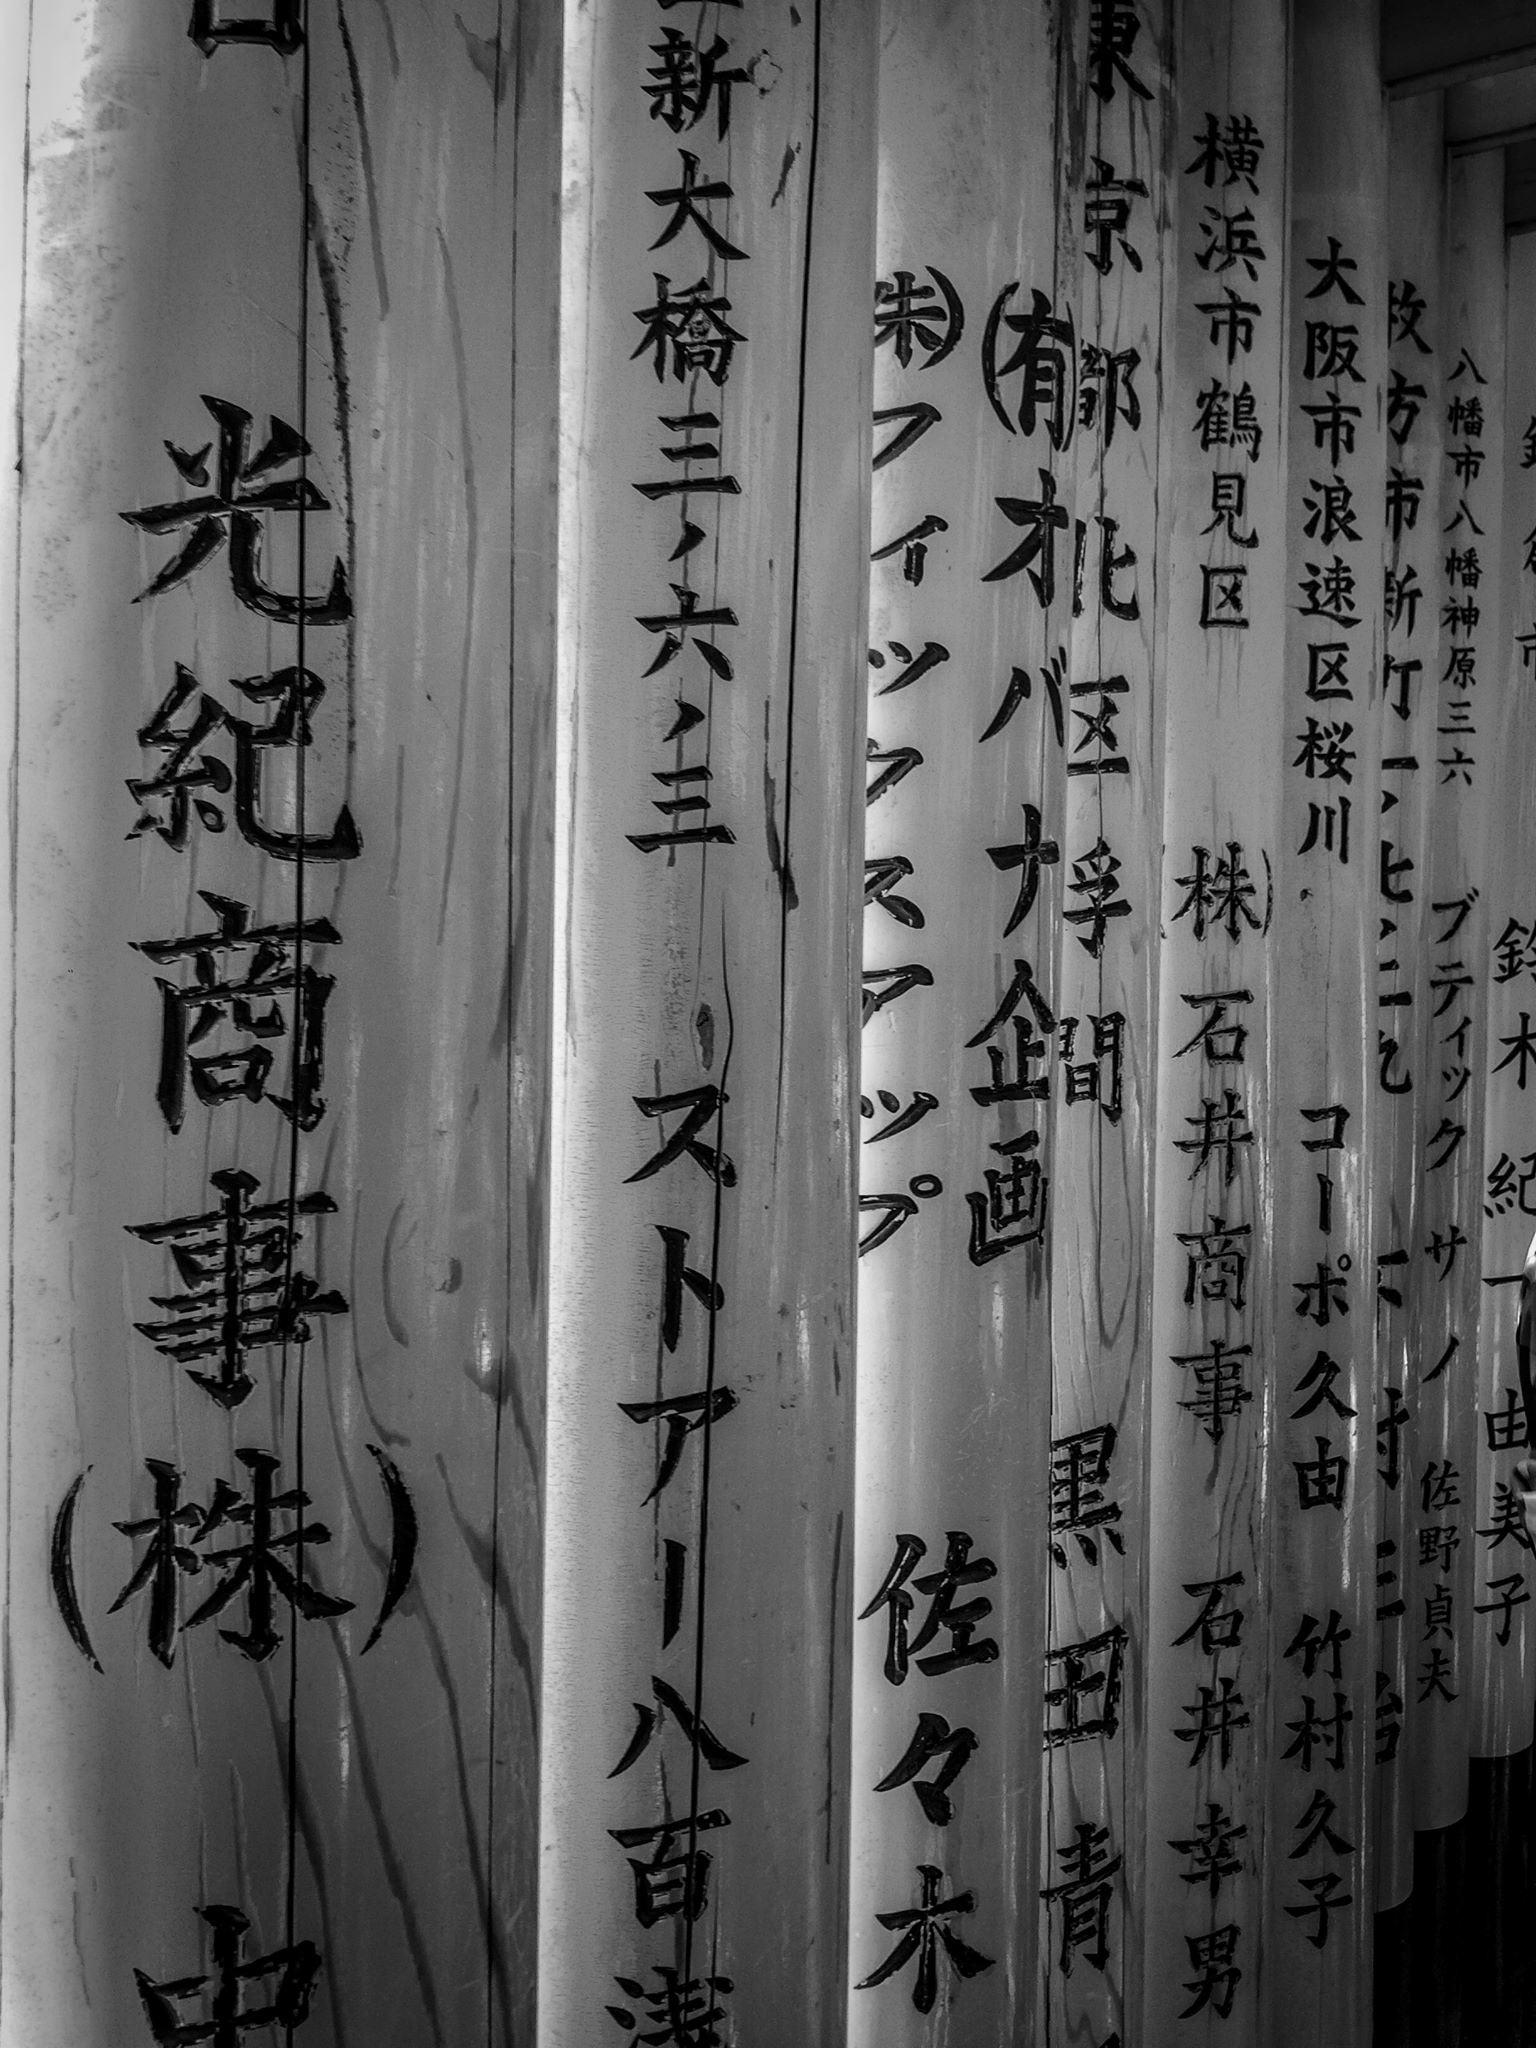 光紀商事(株) 中
新大橋三ノ六ノ三 ストアー八百浅
(株)フィックスアップ
(有)オバナ企画 佐々木
東京都北区浮間 黒田青
横浜市鶴見区 (株)石井商事 石井幸男
大阪市浪速区桜川 コーポ久由 竹村久子
枚方市新町一ノ七ノ二九
八幡市八幡神原三六 ブティックサノ 佐野貞夫
鈴木紀 由美子